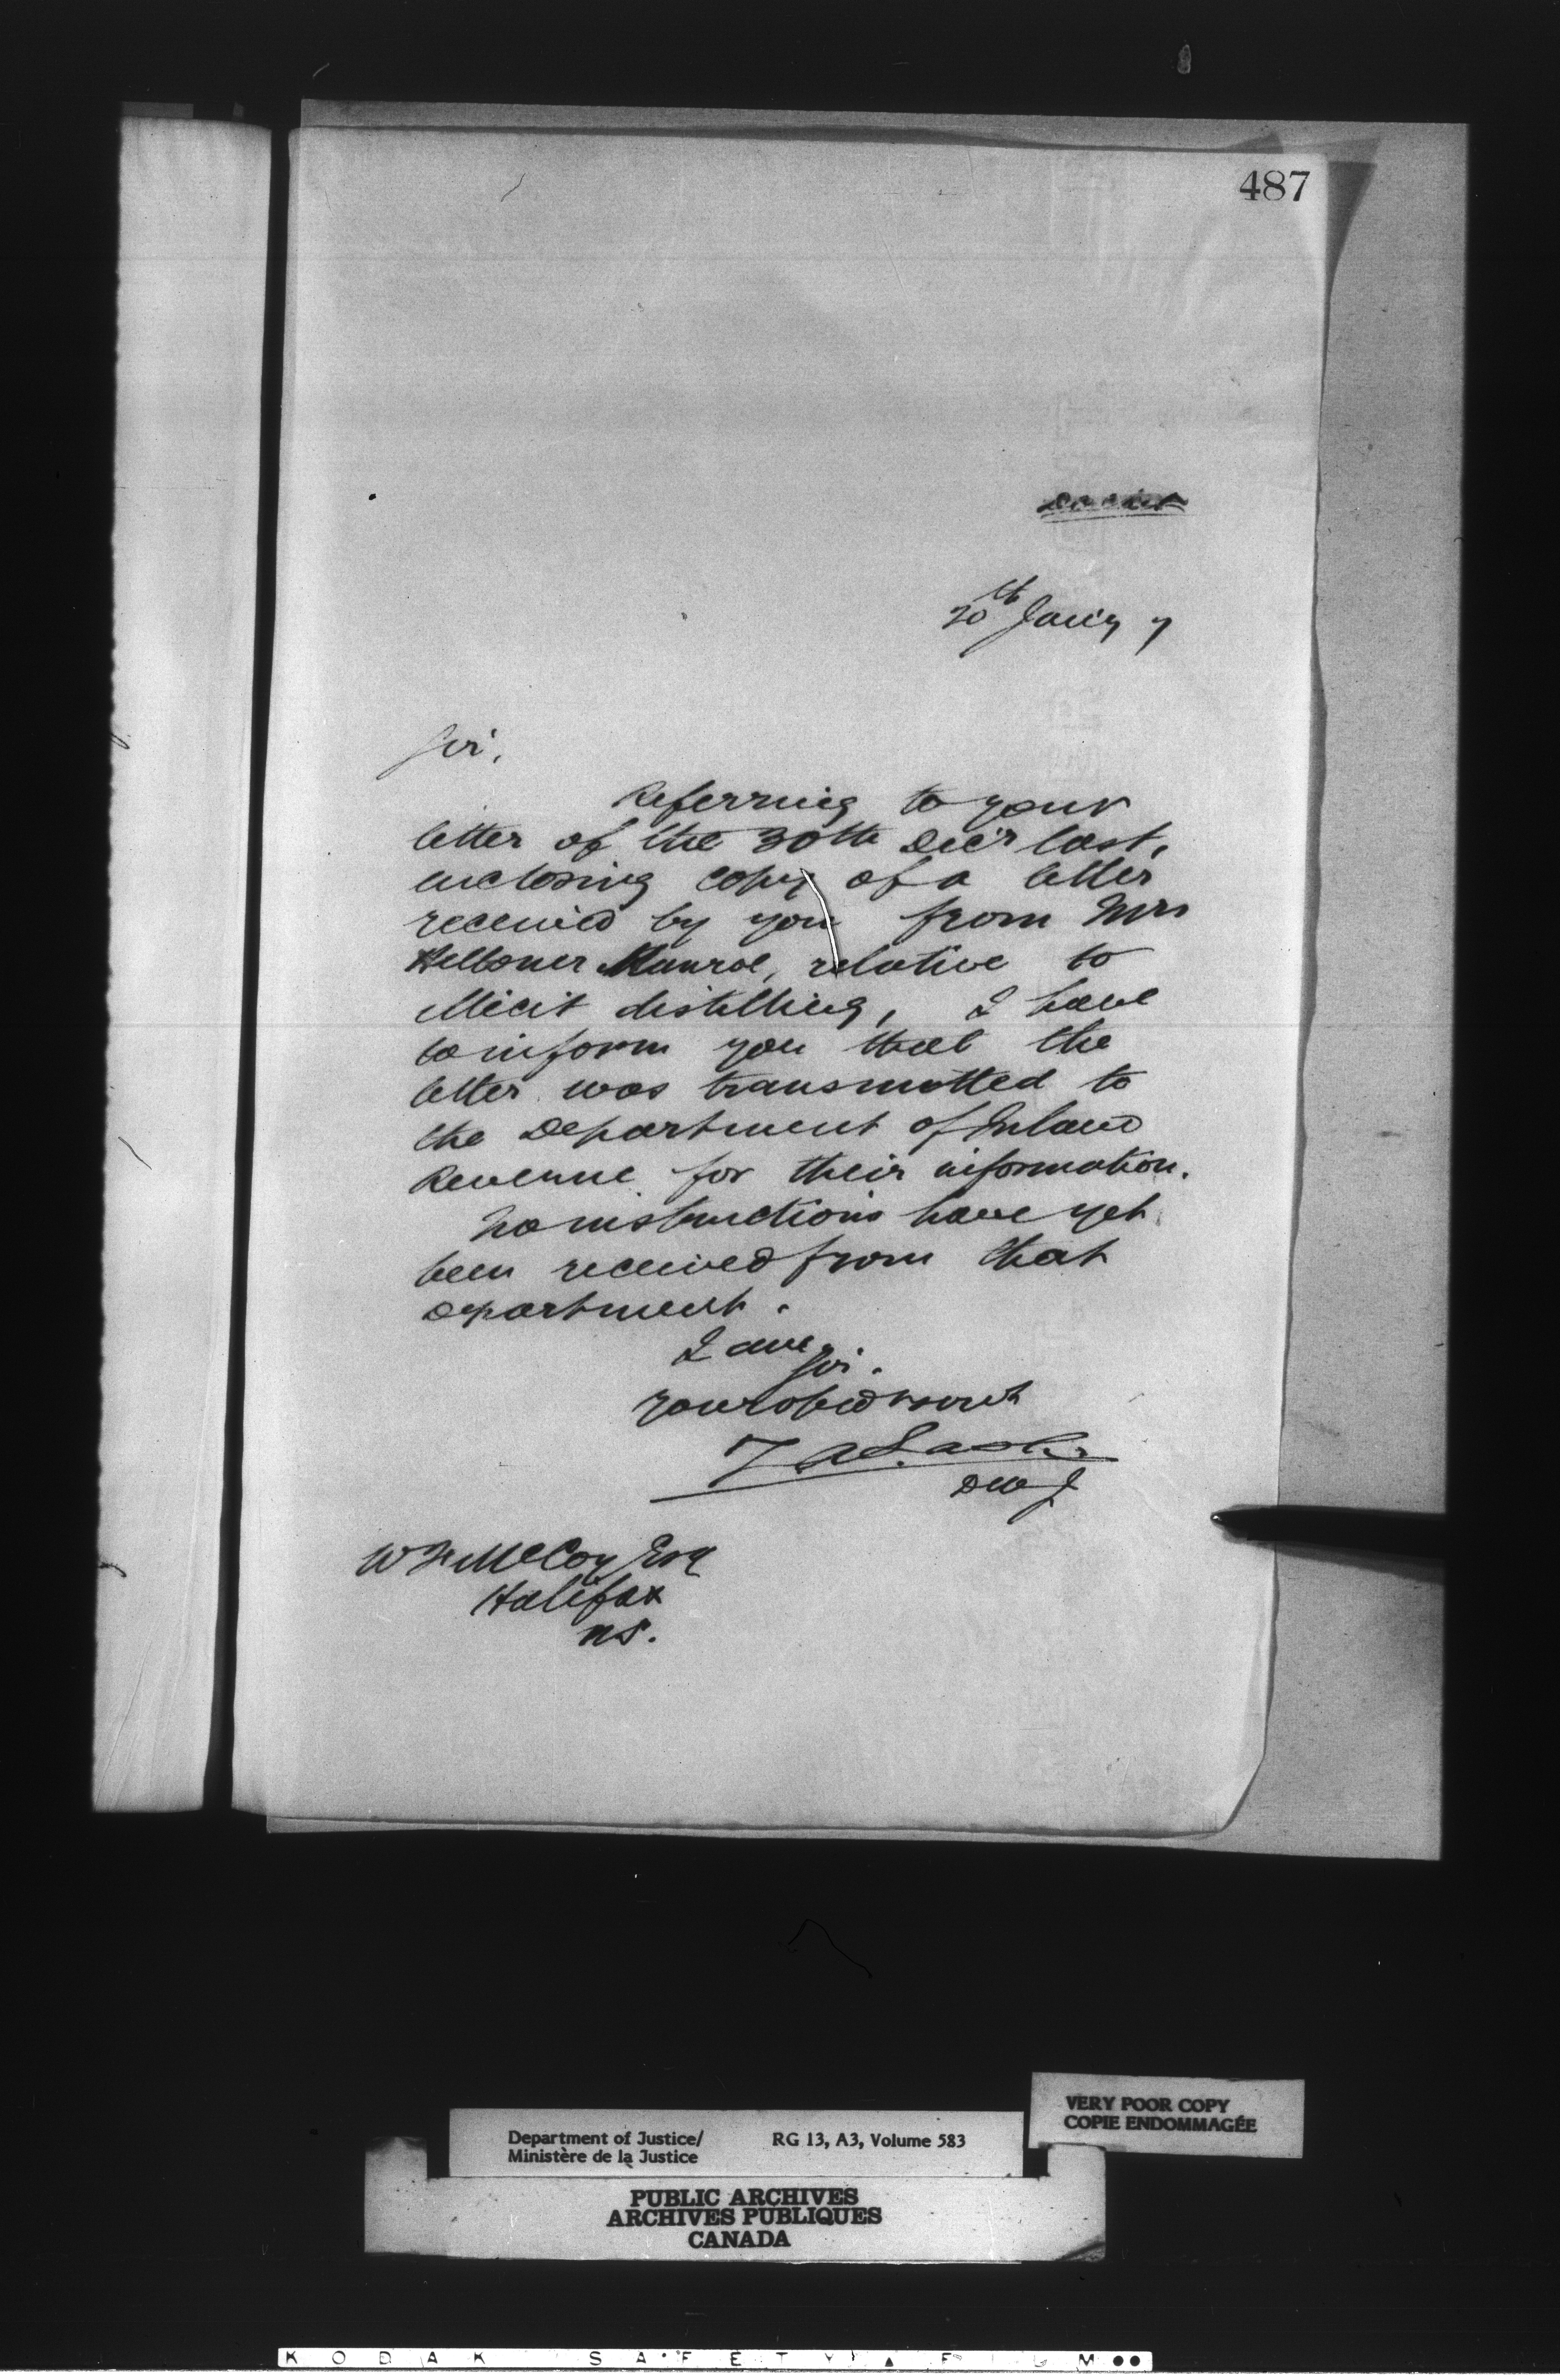 487
20th Jan'y 7
Sir,
Referring to your
letter of the 30th Dec'r last,
enclosing copy of a letter
received by you from Mrs
Munroe, relative to
illicit distilling, I have
to inform you that the
letter was transmitted to
the Department of Inland
Revenue for their information.
No instructions have yet
been received from that
Department.
I am
Sir.
Your obed servt
Z A Lash
DMJ
W F McCoy Esq
Halifax
NS.
VERY POOR COPY
COPIE ENDOMMAGÉE
Department of Justice/ RG 13, A3, Volume 583
Ministère de la Justice
PUBLIC ARCHIVES
ARCHIVES PUBLIQUES
CANADA
KODAK SAFETY FILM